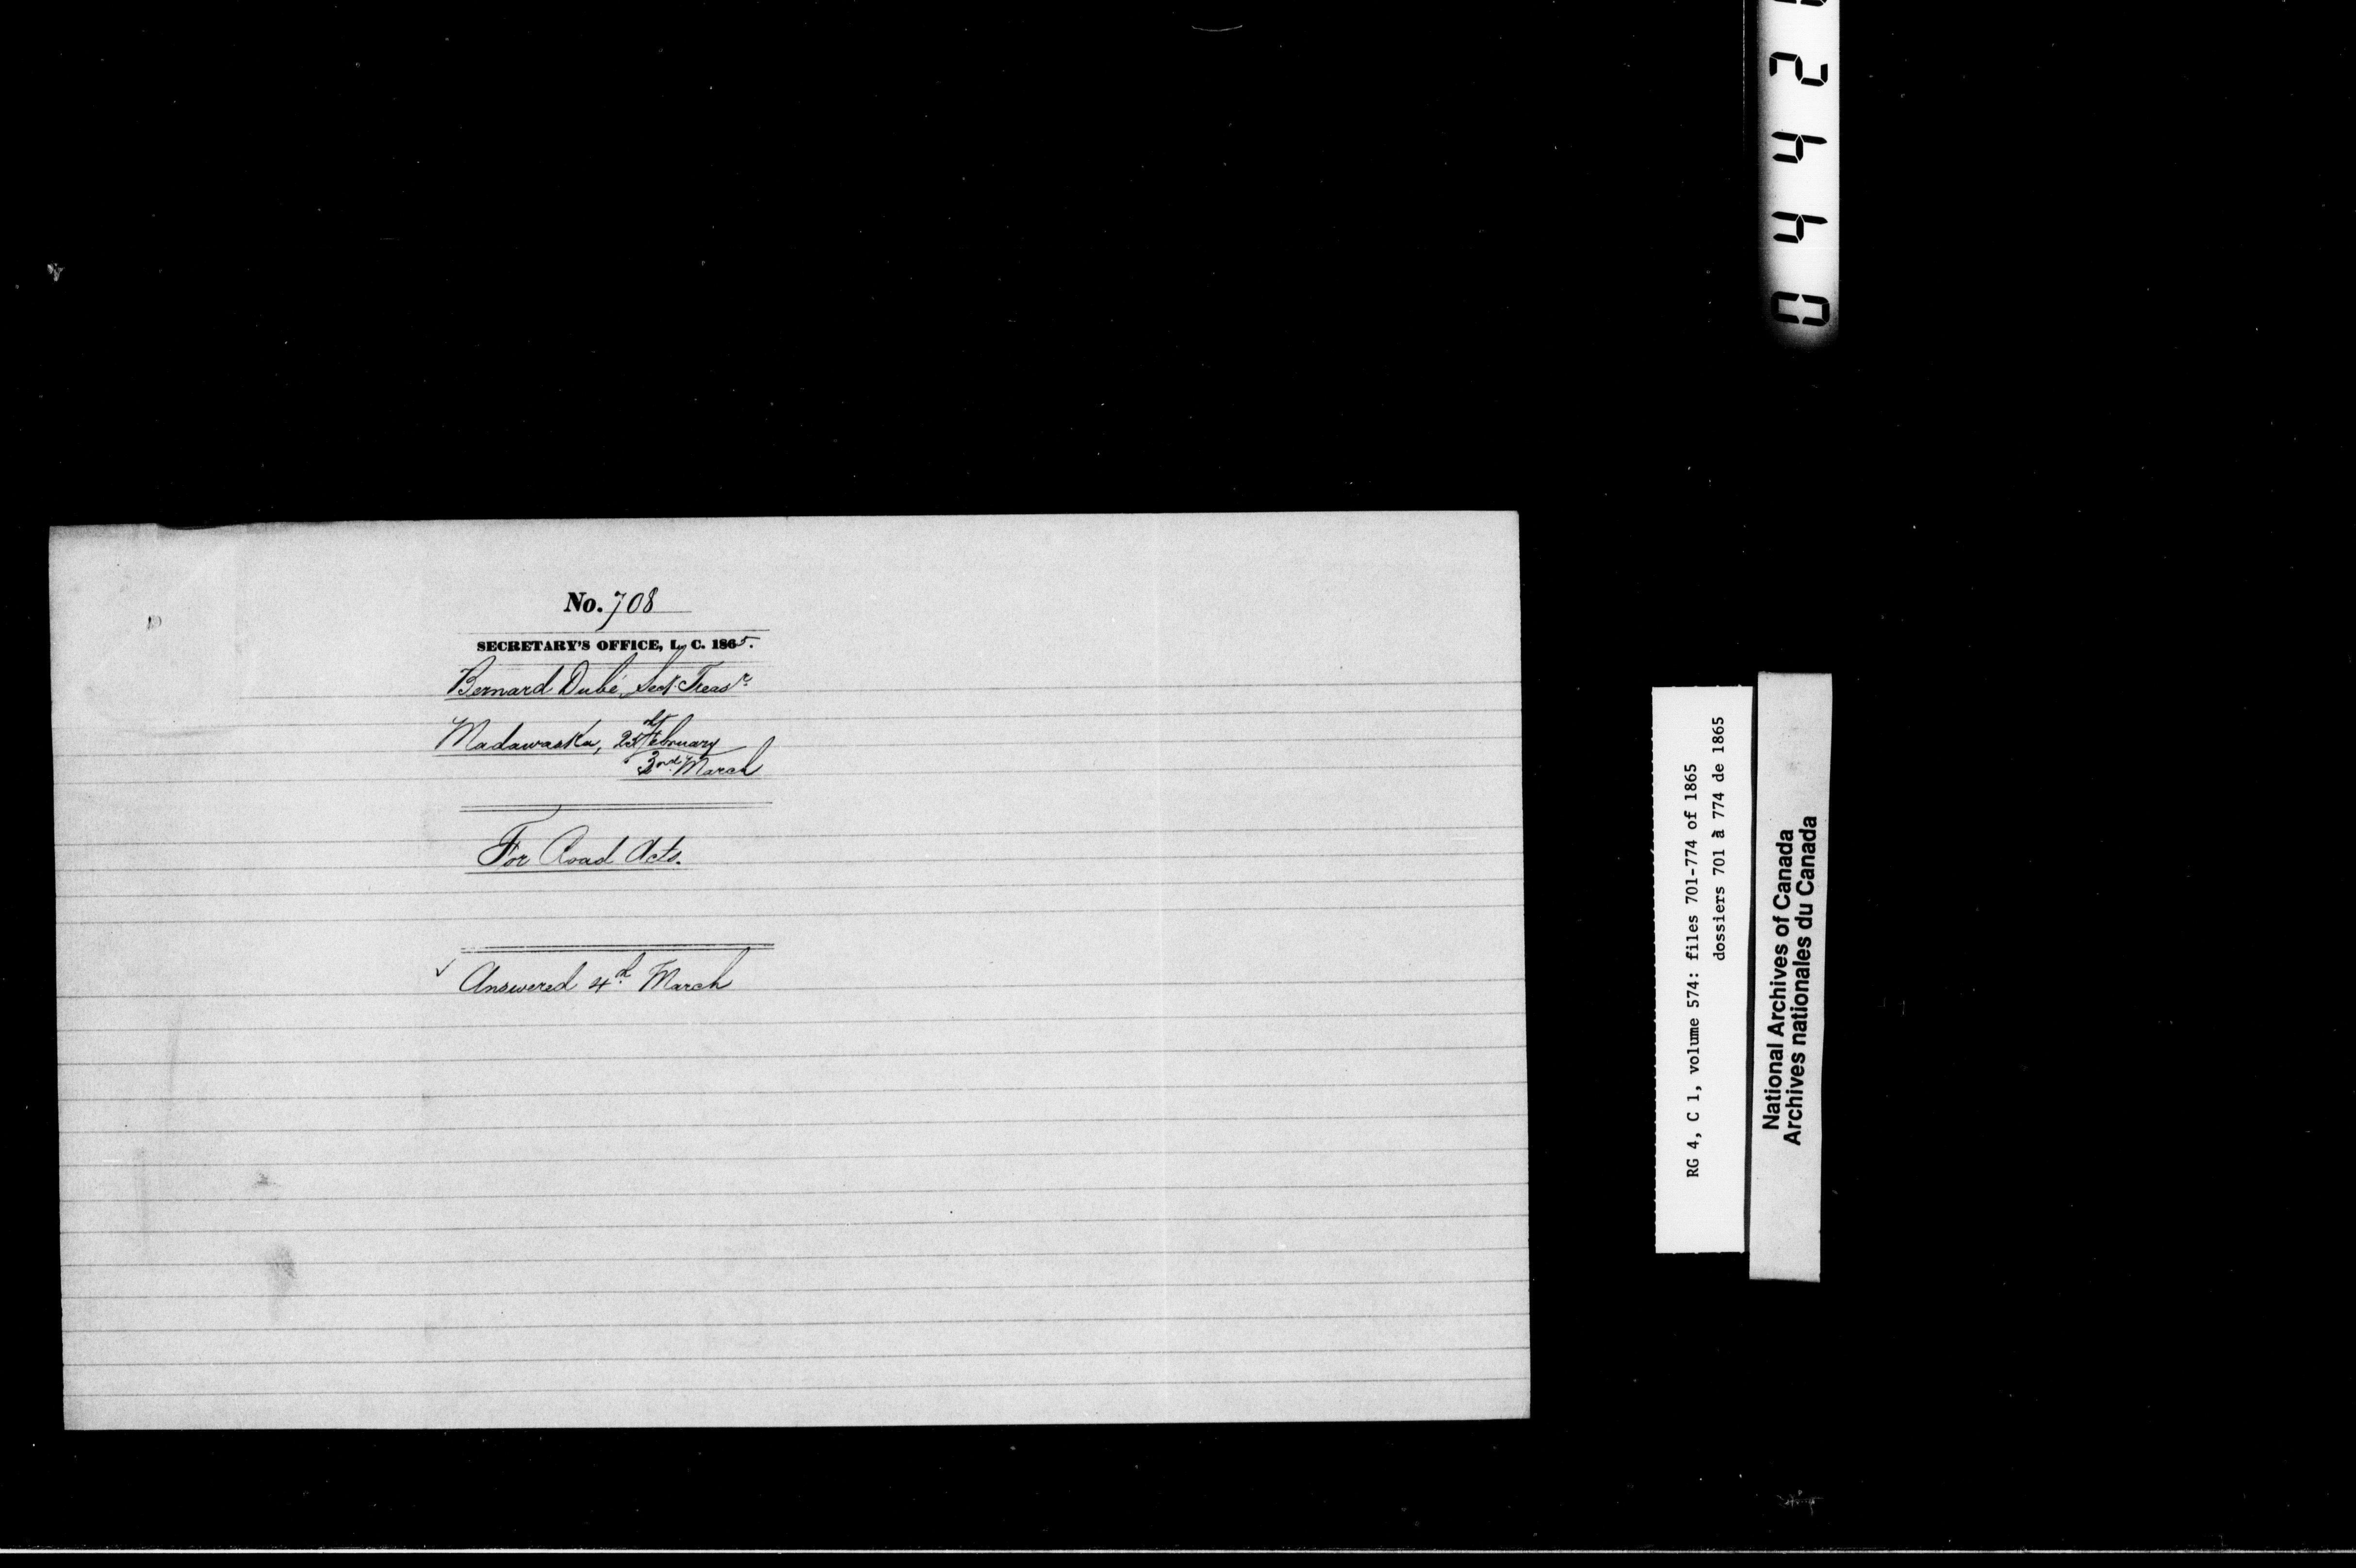 No. 708
SECRETARY'S OFFICE, L. C. 1865.
Bernard Dubé, Sect. Treasr.
Madawaska, February
2nd March
For Road Acts.
✓ Answered 4th March
RG 4, C 1, volume 574: files 701-774 of 1865
dossiers 701 à 774 de 1865
National Archives of Canada
Archives nationales du Canada
0442